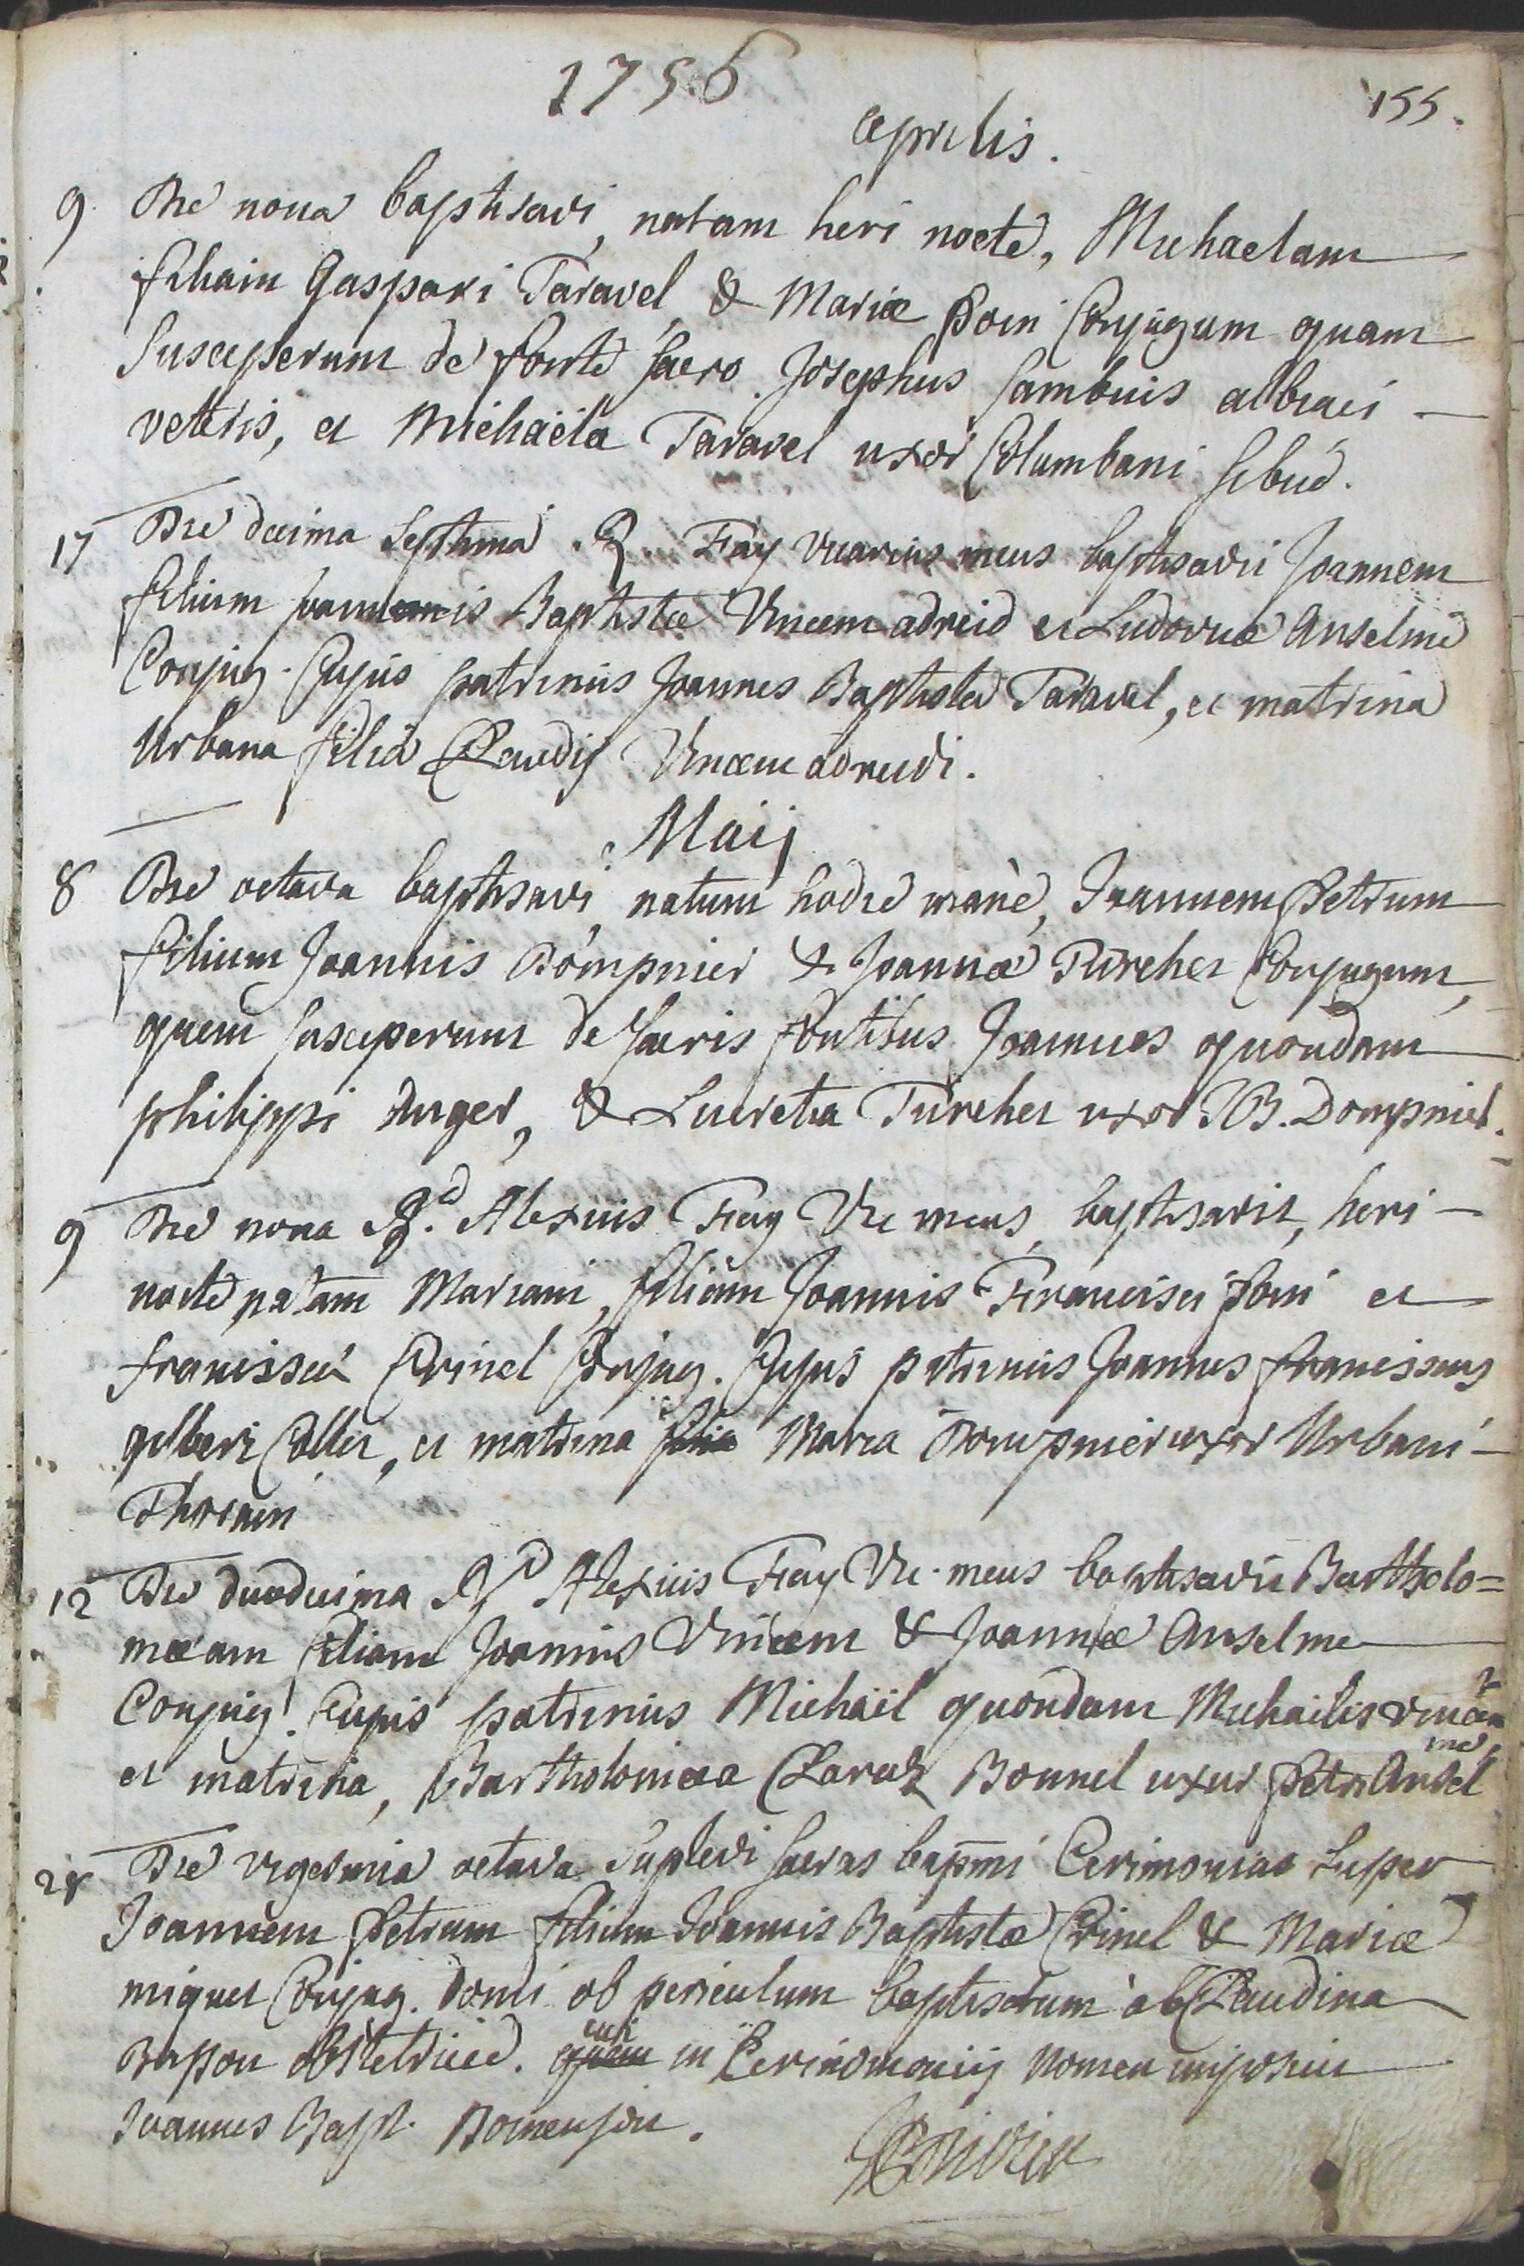 1756
155.
aprilis.
9 Die nona baptisavi, natam heri nocte, Michaelam
filiam Gaspari Taravel & Mariæ Poin Conjugum quam
Susceperunt de fonte sacro Josephus Sambuis albraci
veteris, et Michaëla Taravel uxor Columbani Sibué.
17 Die decima Septima . R. Fay vicarius meus baptisavit Joannem
filium Joannis Baptistæ Vincem adreid et Ludovicæ Anselme
Conjug. Cujus patrinus Joannes Baptista Taravel, et matrina
Urbana filia Claudij Vincem adreudi.
Maij
8 Die octava baptisavi natum hodie mane, Joannem Petrum
filium Joannis Dompnier & Joannæ Turcher Conjugum,
quem susceperunt de sacris fontibus Joannes quondam
philippi Auger, & Lucretia Turcher uxor JB. Dompnier.
9 Die nona Rd. Alexius Fay Vic meus, baptisavit, heri
nocte natam Mariam, filiam Joannis Francisci Poin et
franciscæ Crinel Conjug. Cujus patrinus Joannes franciscus
gilberi Collet, et matrina filia Maria Dompnier uxor Urbani
12 Die duodecima Rd Alexius Fay Vic. meus baptisavit Bartholo=
mæam filiam Joannis Vincem & Joannæ Anselme
Conjug. Cujus patrinus Michaël quondam Michaelis vincem
et matrina, Bartholomæa Claraz Bonnel uxor Petri Ansel
me
28 Die vigesima octava Suplevi sacras bapmi Cerimonias super
Joannem Petrum filium Joannis Baptistæ Crinel & Mariæ
miquet Conjug. domi ob periculum baptisatum ab Claudina
Rapou obstetrice. quem cui in Cerimoniij nomen imposuit
Joannes Bapt. Bomenjon.